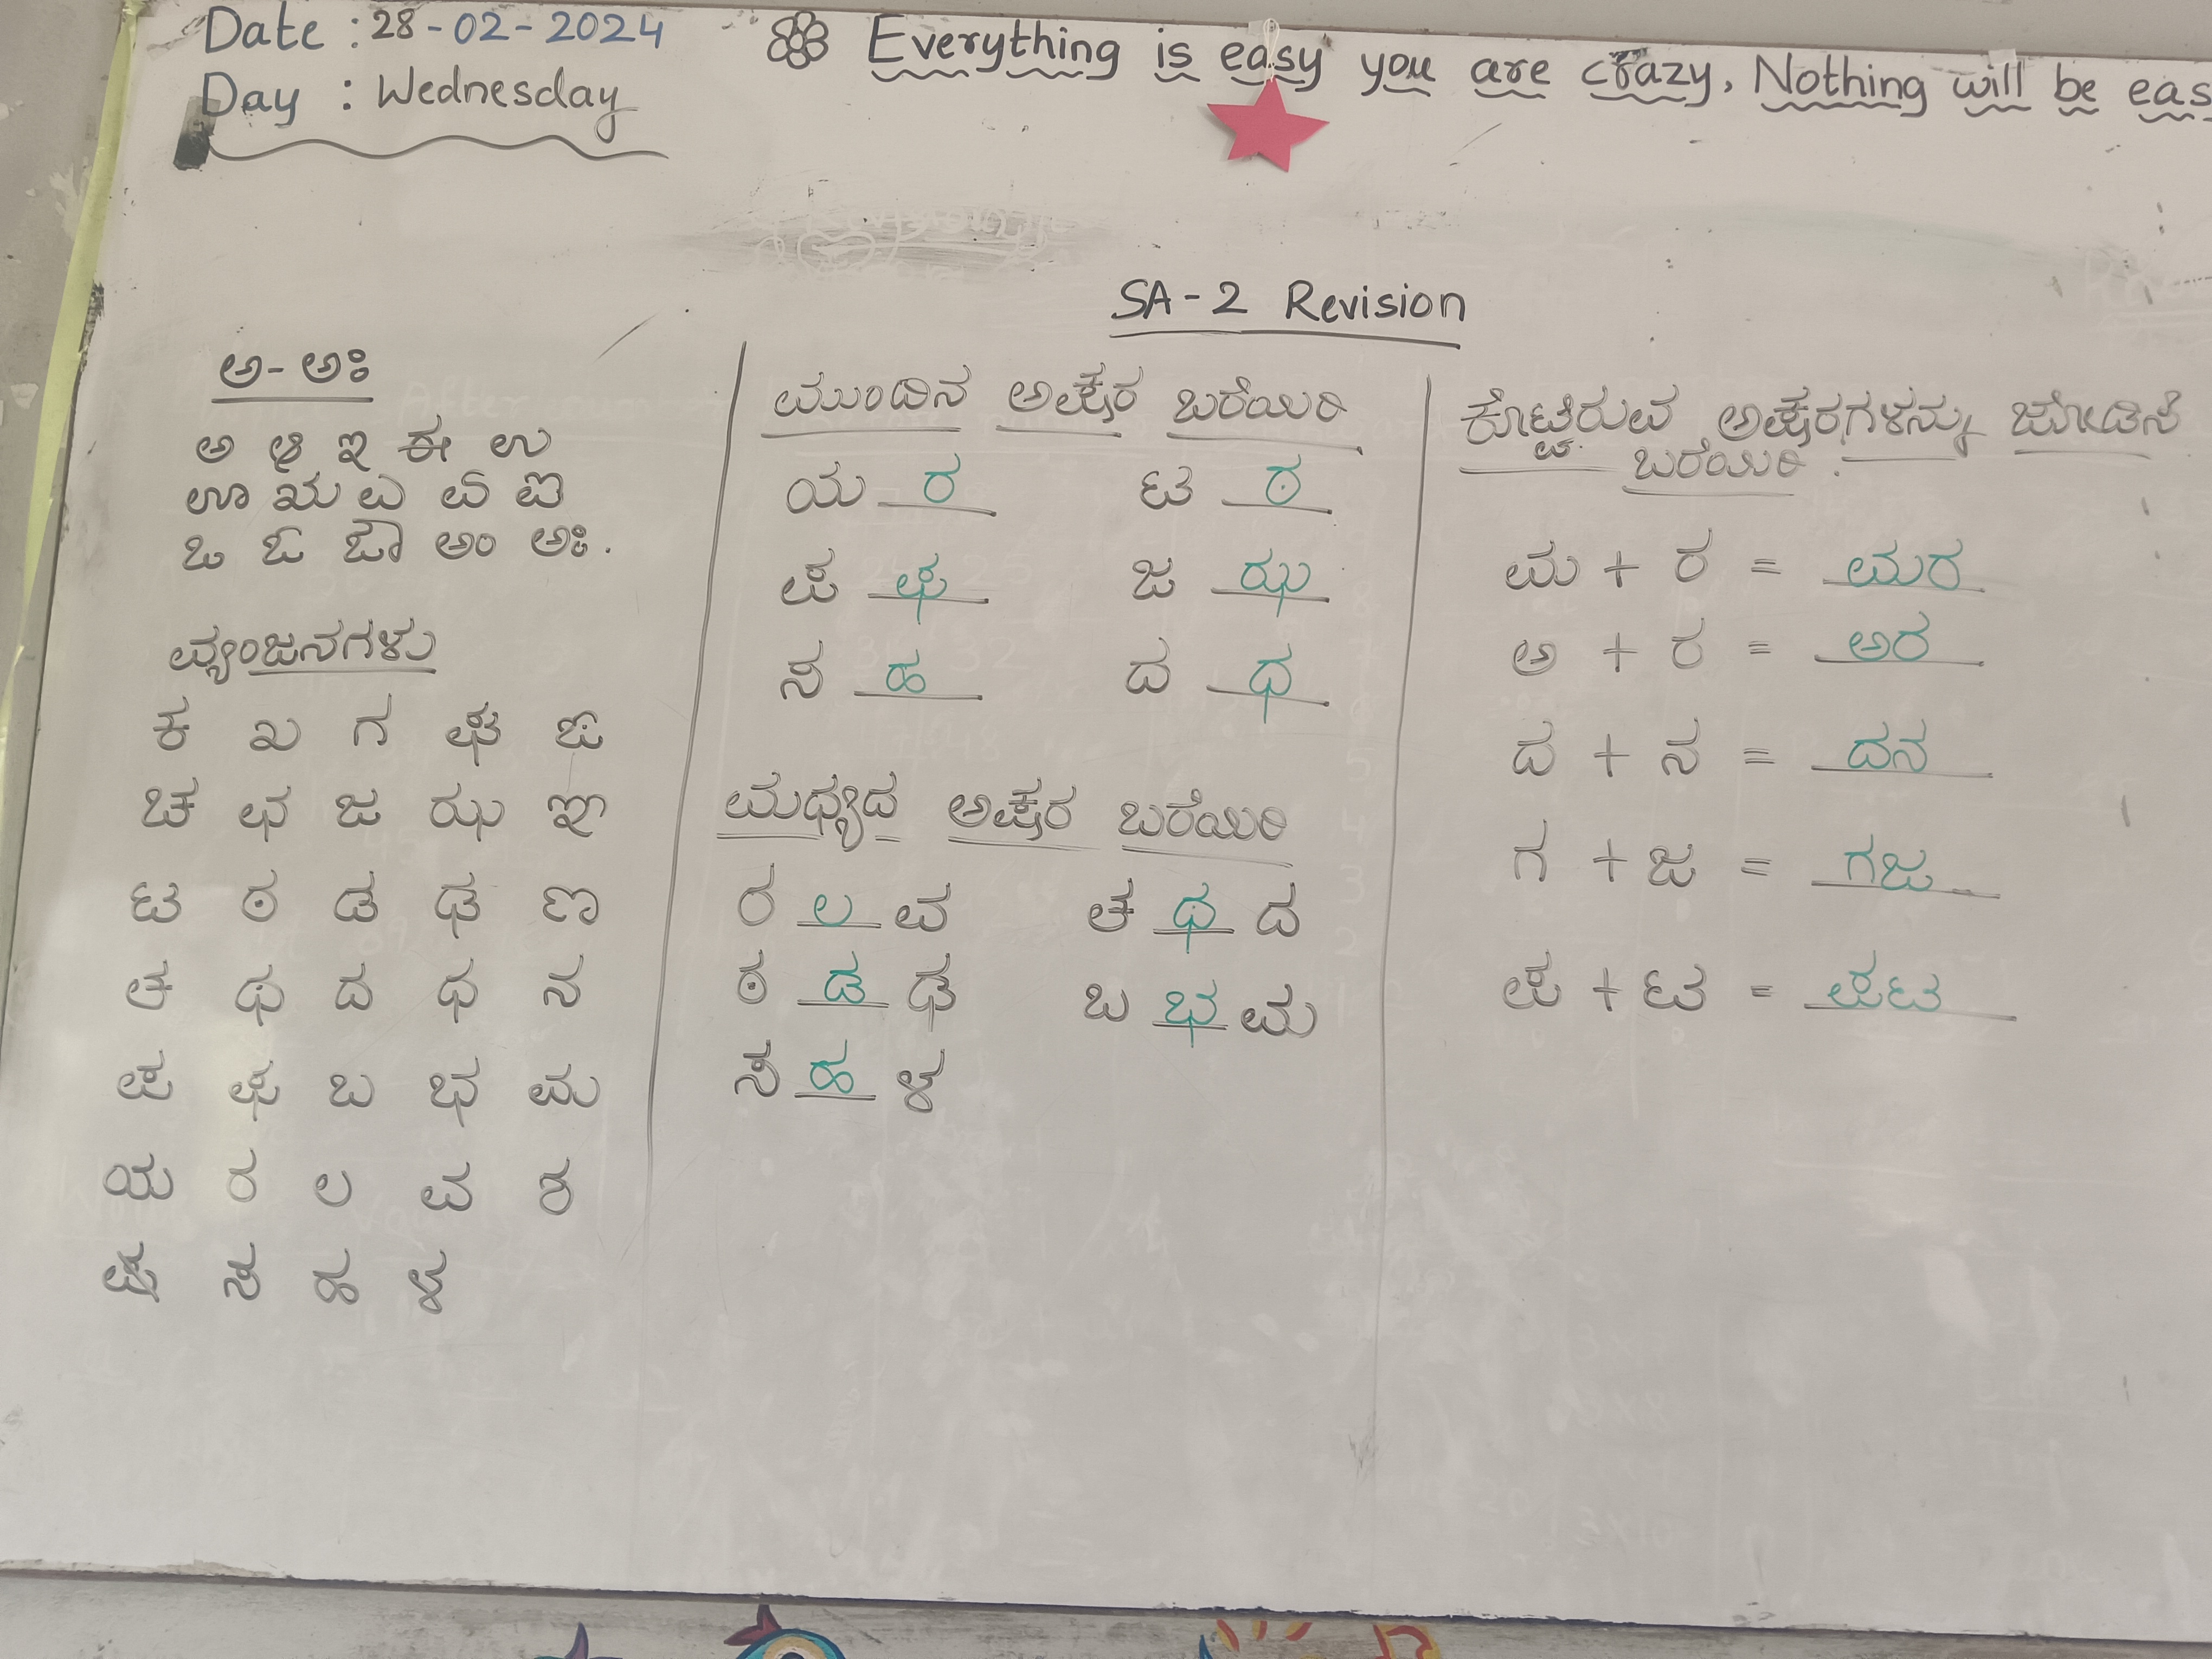 Date : 28-02-2024
Everything is easy you are crazy, Nothing will be
Day : Wednesday
SA-2 Revision
ಅ-ಅಃ
ಅ ಆ ಇ ಈ ಉ
ಊ ಋ ಎ ಏ ಐ
ಒ ಓ ಔ ಅಂ ಅಃ.
ವ್ಯಂಜನಗಳು
ಕ ಖ ಗ ಘ ಙ
ಚ ಛ ಜ ಝ ಞ
ಟ ಠ ಡ ಢ ಣ
ತ ಥ ದ ಧ ನ
ಪ ಫ ಬ ಭ ಮ
ಯ ರ ಲ ವ ಶ
ಷ ಸ ಹ ಳ
ಮುಂದಿನ ಅಕ್ಷರ ಬರೆಯಿರಿ
ಯ ರ ಟ ಠ
ಪ ಫ ಜ ಝ
ಸ ಹ ದ ಧ
ಮಧ್ಯದ ಅಕ್ಷರ ಬರೆಯಿರಿ
ರ ಲ ವ ತ ಥ ದ
ಠ ಡ ಢ ಬ ಭ ಮ
ಸ ಹ ಳ
ಕೊಟ್ಟಿರುವ ಅಕ್ಷರಗಳನ್ನು ಜೋಡಿಸಿ
ಬರೆಯಿರಿ.
ಮ + ರ = ಮರ
ಅ + ರ = ಅರ
ದ + ನ = ದನ
ಗ + ಜ = ಗಜ
ಪ + ಟ = ಪಟ